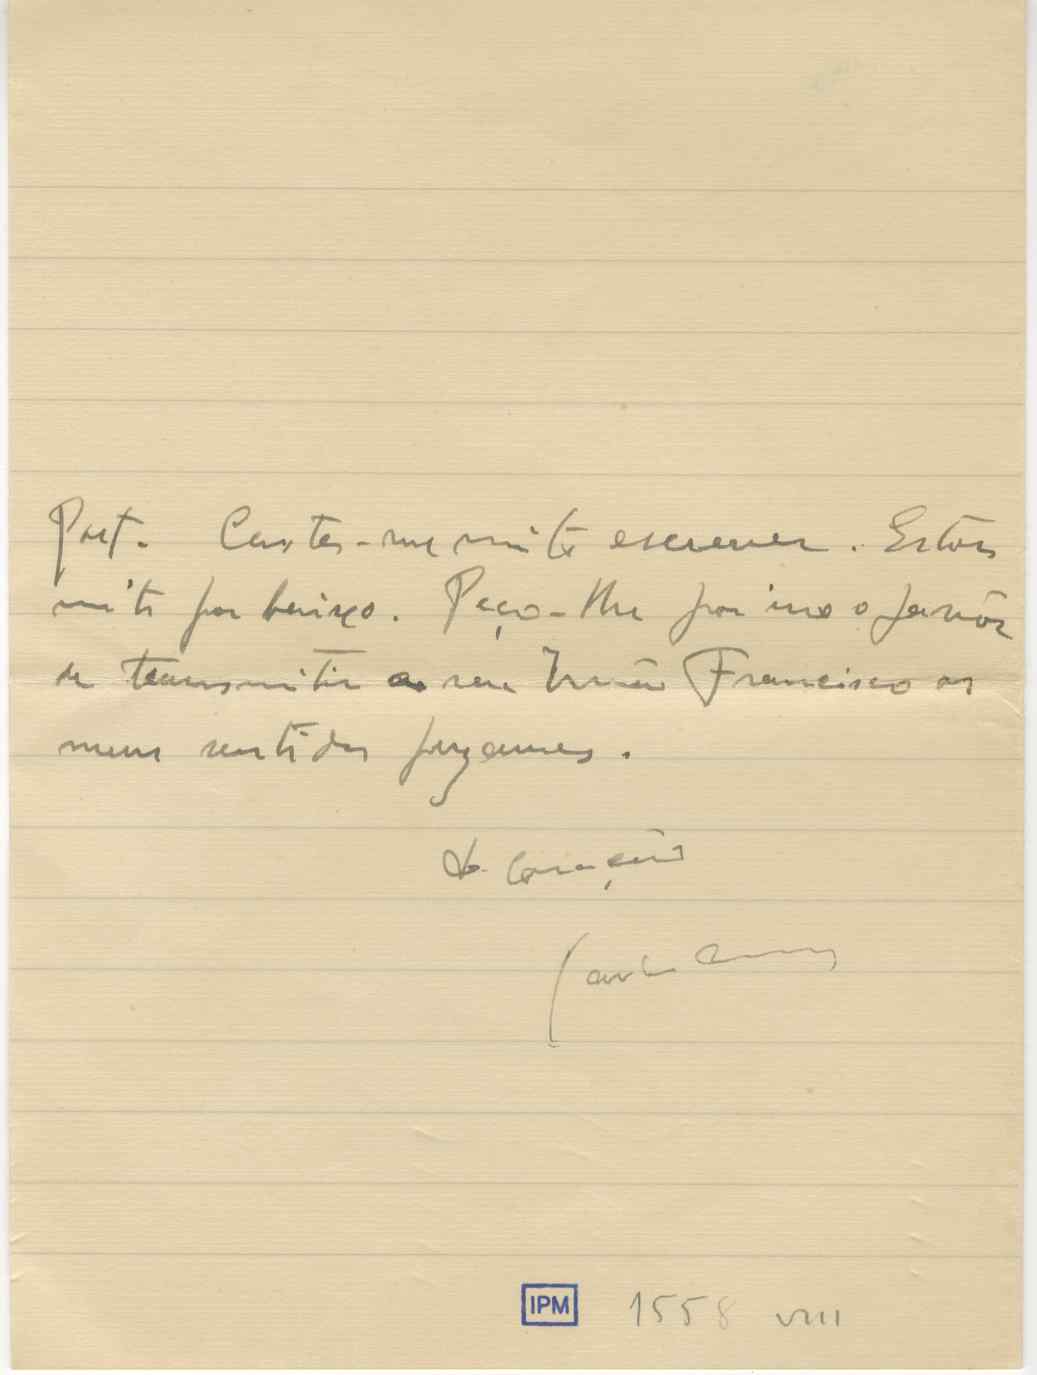 Custa-me muito escrever. Estou
muito por baixo. Peço-lhe por isso o favôr
de transmitir ao seu Irmão Francisco os
meus sentidos pezames.
do Coração
IPM 1558 VIII